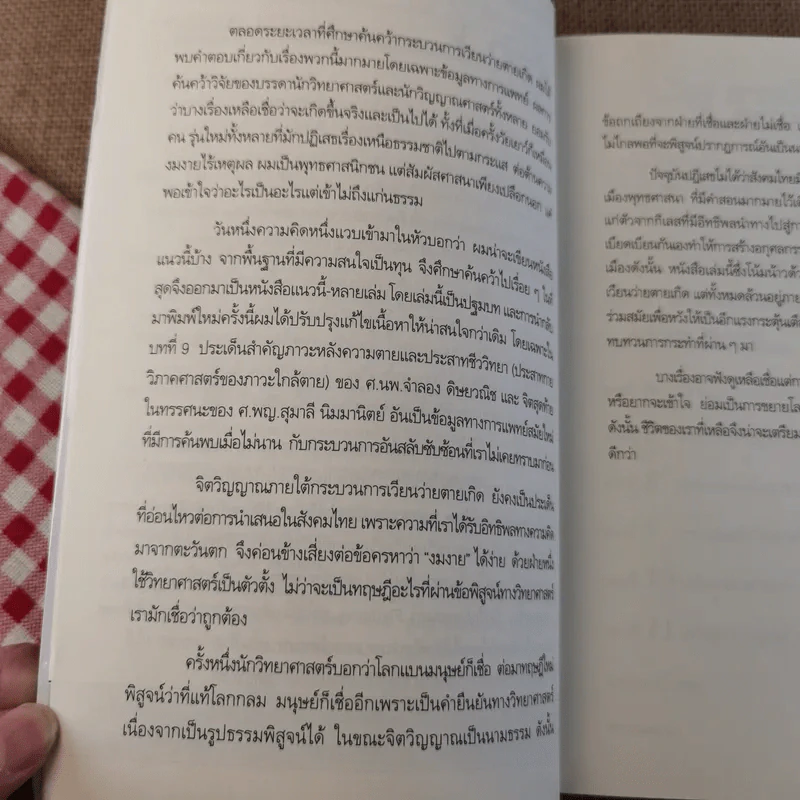 ตลอดระยะเวลาที่ศึกษาค้นคว้ากระบวนการเวียนว่ายตายเกิด ผมได้
พบคำตอบเกี่ยวกับเรื่องพวกนี้มากมายโดยเฉพาะข้อมูลทางการแพทย์ ผลการ
ค้นคว้าวิจัยของบรรดานักวิทยาศาสตร์และนักวิญญาณศาสตร์ทั้งหลาย ยอมรับ
ว่าบางเรื่องเหลือเชื่อว่าจะเกิดขึ้นจริงและเป็นไปได้ ทั้งที่เมื่อครั้งวัยเยาว์ก็เหมือน
คน รุ่นใหม่ทั้งหลายที่มักปฏิเสธเรื่องเหนือธรรมชาติไปตามกระแส ต่อต้านความ
งมงายไร้เหตุผล ผมเป็นพุทธศาสนิกชน แต่สัมผัสศาสนาเพียงเปลือกนอก แค่
พอเข้าใจว่าอะไรเป็นอะไรแต่เข้าไม่ถึงแก่นธรรม
วันหนึ่งความคิดหนึ่งแวบเข้ามาในหัวบอกว่า ผมน่าจะเขียนหนังสือ
แนวนี้บ้าง จากพื้นฐานที่มีความสนใจเป็นทุน จึงศึกษาค้นคว้าไปเรื่อย ๆ ในที่
สุดจึงออกมาเป็นหนังสือแนวนี้-หลายเล่ม โดยเล่มนี้เป็นปฐมบท และการนำกลับ
มาพิมพ์ใหม่ครั้งนี้ผมได้ปรับปรุงแก้ไขเนื้อหาให้น่าสนใจกว่าเดิม โดยเฉพาะใน
บทที่ 9 ประเด็นสำคัญภาวะหลังความตายและประสาทชีววิทยา (ประสาทกาย
วิภาคศาสตร์ของภาวะใกล้ตาย) ของ ศ.นพ.จำลอง ดิษยวณิช และ จิตสุดท้าย
ในทรรศนะของ ศ.พญ.สุมาลี นิมมานิตย์ อันเป็นข้อมูลทางการแพทย์สมัยใหม่
ที่มีการค้นพบเมื่อไม่นาน กับกระบวนการอันสลับซับซ้อนที่เราไม่เคยทราบมาก่อน
จิตวิญญาณภายใต้กระบวนการเวียนว่ายตายเกิด ยังคงเป็นประเด็น
ที่อ่อนไหวต่อการนำเสนอในสังคมไทย เพราะความที่เราได้รับอิทธิพลทางความคิด
มาจากตะวันตก จึงค่อนข้างเสี่ยงต่อข้อครหาว่า "งมงาย" ได้ง่าย ด้วยฝ่ายหนึ่ง
ใช้วิทยาศาสตร์เป็นตัวตั้ง ไม่ว่าจะเป็นทฤษฎีอะไรที่ผ่านข้อพิสูจน์ทางวิทยาศาสตร์
เรามักเชื่อว่าถูกต้อง
ครั้งหนึ่งนักวิทยาศาสตร์บอกว่าโลกแบนมนุษย์ก็เชื่อ ต่อมาทฤษฎีใหม่
พิสูจน์ว่าที่แท้โลกกลม มนุษย์ก็เชื่ออีกเพราะเป็นคำยืนยันทางวิทยาศาสตร์
เนื่องจากเป็นรูปธรรมพิสูจน์ได้ ในขณะจิตวิญญาณเป็นนามธรรม ดังนั้น
ข้อถกเถียงจากฝ่ายที่เชื่อและฝ่ายไม่เชื่อ
ไม่ไกลพอที่จะพิสูจน์ปรากฏการณ์อันเป็นน
ปัจจุบันปฏิเสธไม่ได้ว่าสังคมไทยมี
เมืองพุทธศาสนา ที่มีคำสอนมากมายไว้เ
แก่ตัวจากกิเลสที่มีอิทธิพลนำทางไปสู่กา
เบียดเบียนกันเองทำให้การสร้างอกุศลกรร
เมืองดังนั้น หนังสือเล่มนี้ซึ่งโน้มน้าวด้ว
เวียนว่ายตายเกิด แต่ทั้งหมดล้วนอยู่ภาย
ร่วมสมัยเพื่อหวังให้เป็นอีกแรงกระตุ้นเตือ
ทบทวนการกระทำที่ผ่าน ๆ มา
บางเรื่องอาจฟังดูเหลือเชื่อแต่กา
หรือยากจะเข้าใจ ย่อมเป็นการขยายโล
ดังนั้น ชีวิตของเราที่เหลือจึงน่าจะเตรียม
ดีกว่า